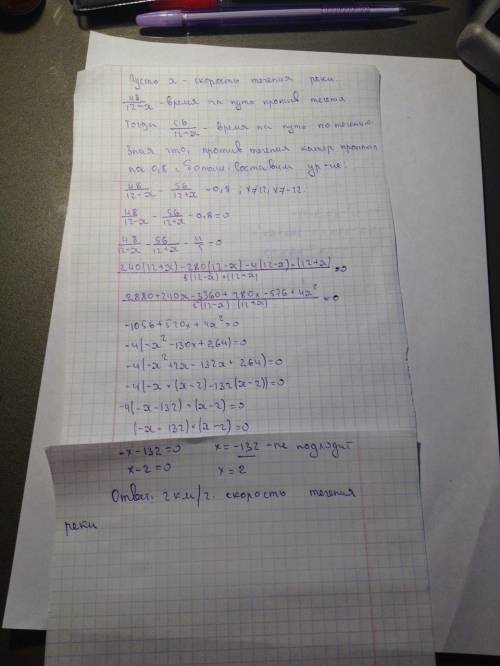 Пусть x - скорость течения реки
48/12-x - время на путь против течен
Тогда 56/12+x - время на путь по течению
Зная что, против течения катер проплыл
на 0,8 ч больше, составим ур-ие:
48/12-x - 56/12+x = 0,8 ; x≠12, x≠-12.
48/12-x - 56/12+x - 0,8 = 0
48/12-x - 56/12+x - 4/5 = 0
240(12+x) - 280(12-x) - 4(12-x)*(12+x) / 5(12-x)*(12+x) = 0
2880+240x-3360+280x-576+4x² / 5(12-x)*(12+x) = 0
-1056+520x+4x²=0
-4(-x²-130x+264)=0
-4(-x²+2x-132x+264)=0
-4(-x*(x-2)-132(x-2))=0
-4(-x-132)*(x-2)=0
(-x-132)*(x-2)=0
-x-132=0 x=-132 -не подходит
x-2=0 x=2
Ответ: 2км/ч. скорость течения
реки